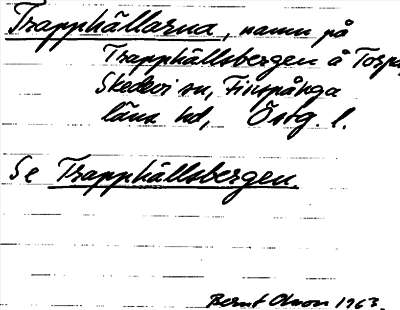 Trapphällarna, namn på
Trapphällsbergen å Torpa,
Skedevi sn, Finspånga
läns hd, Östg. l.
Se Trapphällsbergen.
Bernt Olsson 1963.